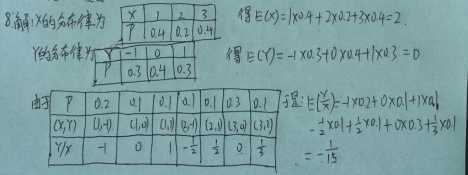 8.解:X的分布律为 X 1 2 3 得E(X)=1×0.4+2×0.2+3×0.4=2.
P 0.4 0.2 0.4
Y的分布律为 Y -1 0 1 得E(Y)=-1×0.3+0×0.4+1×0.3=0
P 0.3 0.4 0.3
由于 P 0.2 0.1 0.1 0.1 0.1 0.3 0.1 于是:E(Y/X)=-1×0.2+0×0.1+1×0.1
(X,Y) (1,-1) (1,0) (1,1) (2,-1) (2,1) (3,0) (3,1) -1/2×0.1+1/2×0.1+0×0.3+1/3×0.1
Y/X -1 0 1 -1/2 1/2 0 1/3 =-1/15